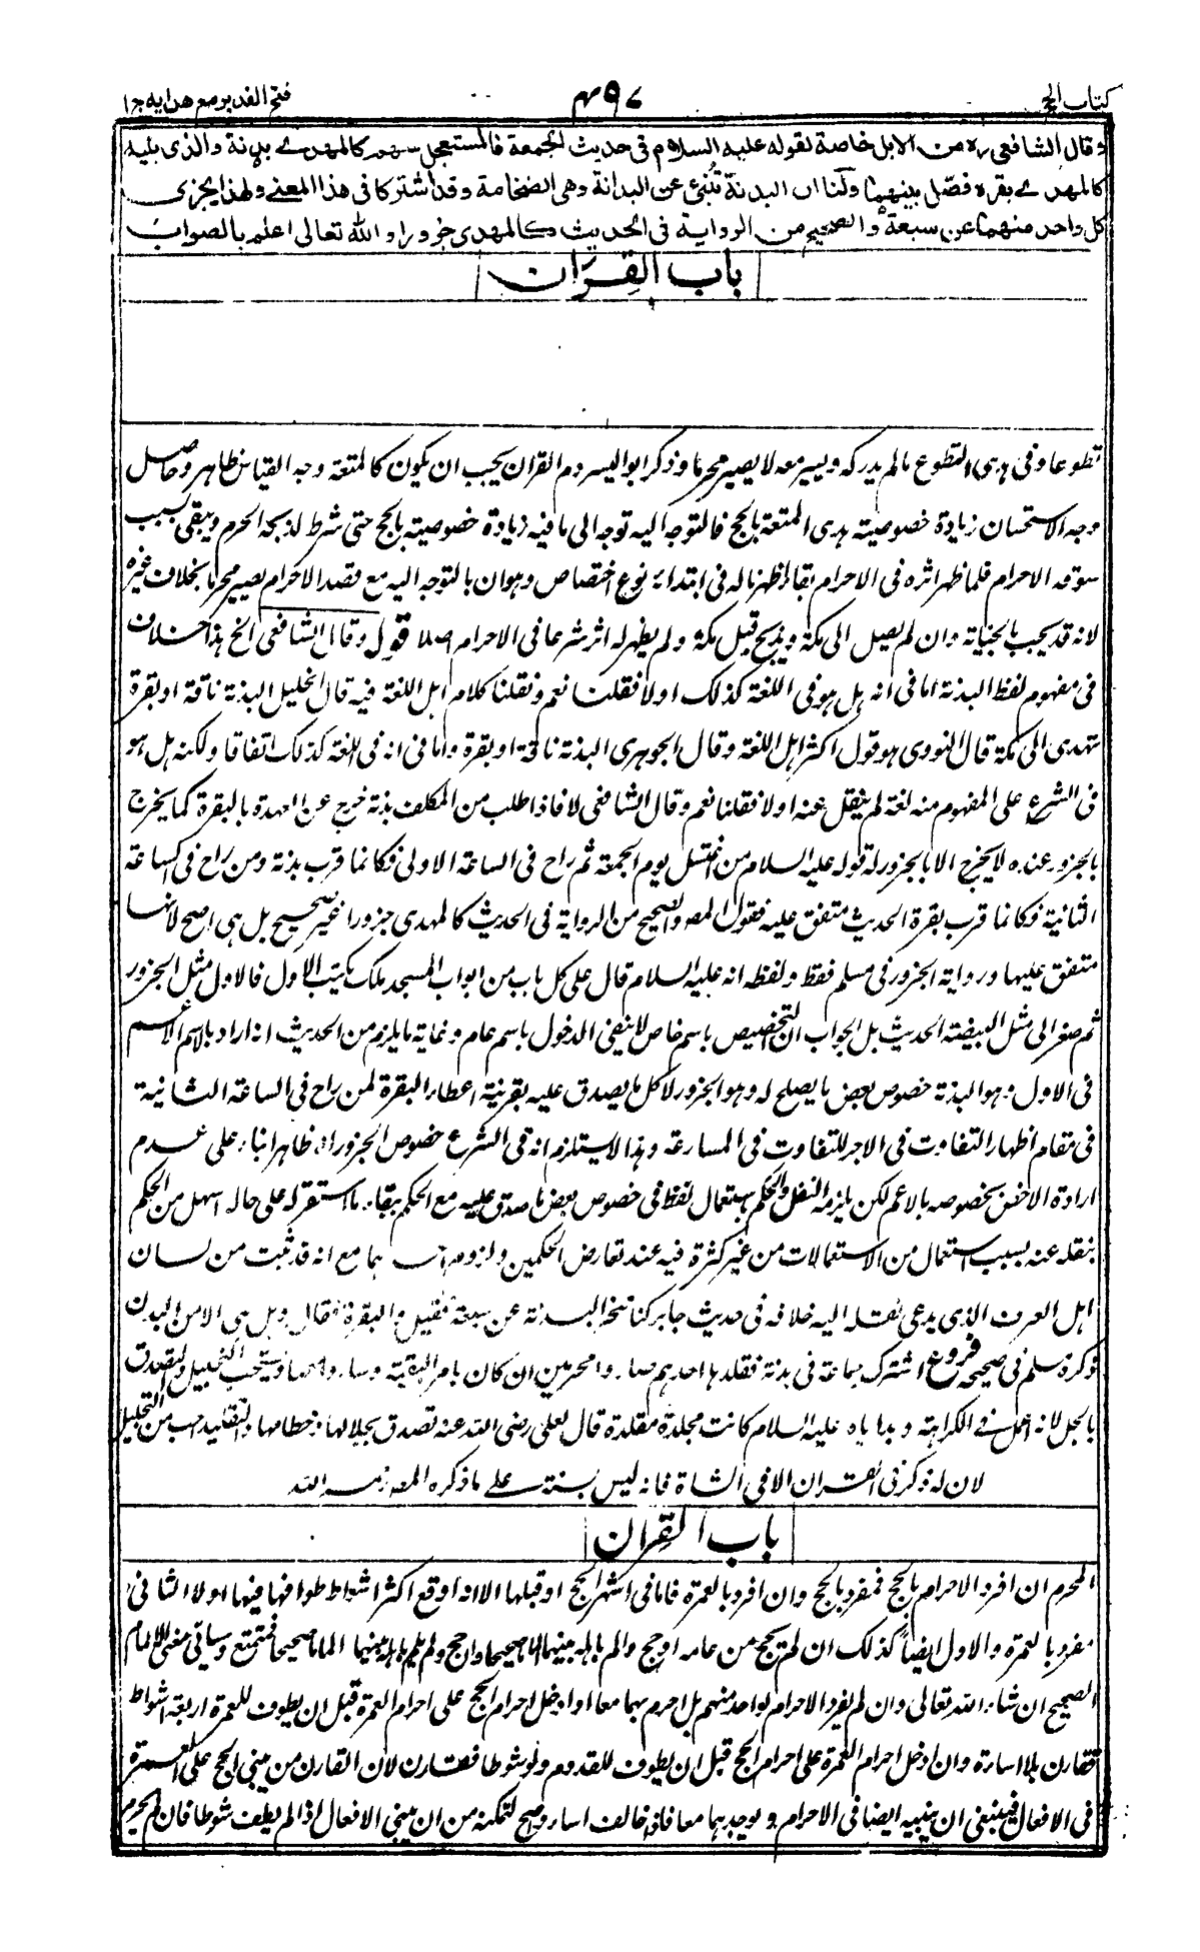 كتاب الحج
٤٩٧
فتح القدير مع هدايه ج ١
وقال الشافعي ره من الابل خاصة لقوله عليه السلام في حديث الجمعة فالمستعجل منهم كالمهدي بدنة والذي يليه
كالمهدي بقرة فصل بينهما ولنا ان البدنة تنبئ عن البدانة وهي الضخامة وقد اشتركا في هذا المعنى ولهذا يجزي
كل واحد منهما عن سبعة والصحيح من الرواية في الحديث كالمهدي جزورا والله تعالى اعلم بالصواب
باب القِرَان
تطوعا وفي هدي التطوع مالم يدركه ويسير معه لا يصير محرما وذكر ابو اليسر دم القران يجب ان يكون كالمتعة وجه القياس ظاهر وحاصل
وجه الاستحسان زيادة خصوصية هدى المتعة بالحج فالتوجه اليه توجه الى ما فيه زيادة خصوصية بالحج حتى شرط لذبحه الحرم ويبقى بسبب
سوقه الاحرام فلما ظهر اثره في الاحرام بقاء اظهرنا له في ابتدائه نوع اختصاص وهو ان بالتوجه اليه مع قصد الاحرام يصير محرما بخلاف غيره
لانه قد يجب بالجناية وان لم يصل الى مكة ويذبح قبل مكة ولم يظهر له اثر شرعا في الاحرام اصلا قوله وقال الشافعي الخ هذا خلاف
في مفهوم لفظ البدنة اما في انه هل هو في اللغة كذلك اولا فقلنا نعم ونقلنا كلام اهل اللغة فيه قال الخليل البدنة ناقة او بقرة
تهدى الى مكة قال النووي هو قول اكثر اهل اللغة وقال الجوهري البدنة ناقة او بقرة واما في انه في اللغة كذلك اتفاقا ولكنه هل هو
في الشرع على المفهوم منه لغة لم ينقل عنه اولا فقلنا نعم وقال الشافعي لا فاذا طلب من المكلف بدنة خرج عن العهدة بالبقرة كما يخرج
بالجزور عنده لا يخرج الا بالجزور له قوله عليه السلام من اغتسل يوم الجمعة ثم راح في الساعة الاولى فكانما قرب بدنة ومن راح في الساعة
الثانية فكانما قرب بقرة الحديث متفق عليه فقول المصـ والصحيح من الرواية في الحديث كالمهدى جزورا غير صحيح بل هي اصح لانها
متفق عليها ورواية الجزور في مسلم فقط ولفظه انه عليه السلام قال على كل باب من ابواب المسجد ملك يكتب الاول فالاول مثل الجزور
ثم صغر الى مثل البيضة الحديث بل الجواب ان التخصيص باسم خاص لا ينفي الدخول باسم عام وغاية ما يلزم من الحديث انه اراد بالاسم الاعم
في الاول وهو البدنة خصوص بعض ما يصلح له وهو الجزور لا كل ما يصدق عليه بقرينة اعطاء البقرة لمن راح في الساعة الثانية
في مقام اظهار التفاوت في الاجر للتفاوت في المسارعة وهذا لا يستلزم انه في الشرع خصوص الجزور الا ظاهرا بناء على عدم
ارادة الاخص بخصوصه بالاعم لكن يلزمه النقل والحكم باستعمال لفظ في خصوص بعض ما صدق عليه مع الحكم ببقاء ما استقر له على حاله اسهل من الحكم
بنقله عنه بسبب استعمال من الاستعمالات من غير كثرة فيه عند تعارض الحكمين ولزوم احدهما مع انه قد ثبت من لسان
اهل العرف الذي يدعى نقله اليه خلافه في حديث جابر كنا ننحر البدنة عن سبعة فقيل والبقرة فقال وهل هي الا من البدن
ذكره مسلم في صحيحه فروع اشترك جماعة في بدنة فقلدها احدهم صاروا محرمين ان كان بامر البقية وساروا معها ويستحب التجليل والتصدق
بالجل لانه اعمل في الكرامة وهداياه عليه السلام كانت مجللة مقلدة قال لعلي رضي الله عنه تصدق بجلالها وخطامها والتقليد احب من التجليل
لان له ذكرا في القران الا في الشاة فانه ليس بسنة على ما ذكره المصـ رحمه الله
باب القِران
المحرم ان افرد الاحرام بالحج فمفرد بالحج وان افرد بالعمرة فاما في اشهر الحج او قبلها الا انه اوقع اكثر اشواط طوافها فيها اولا الثاني
مفرد بالعمرة والاول ايضا كذلك ان لم يحج من عامه او حج والم باهله بينهما الماما صحيحا وان حج ولم يلم باهله بينهما الماما صحيحا فمتمتع وسياتي معنى الالمام
الصحيح ان شاء الله تعالى وان لم يفرد الاحرام لواحد منهم بل احرم بهما معا او ادخل احرام الحج على احرام العمرة قبل ان يطوف للعمرة اربعة اشواط
فقارن بلا اساءة وان ادخل احرام العمرة على احرام الحج قبل ان يطوف للقدوم ولو شوطا فقارن لان القارن من يبني الحج على العمرة
في الافعال فينبغي ان يبنيه ايضا في الاحرام ويوجدهما معا فاذا خالف اساء وصح لتمكنه من ان يبني الافعال اذا لم يطف شوطا فان لم يحرم